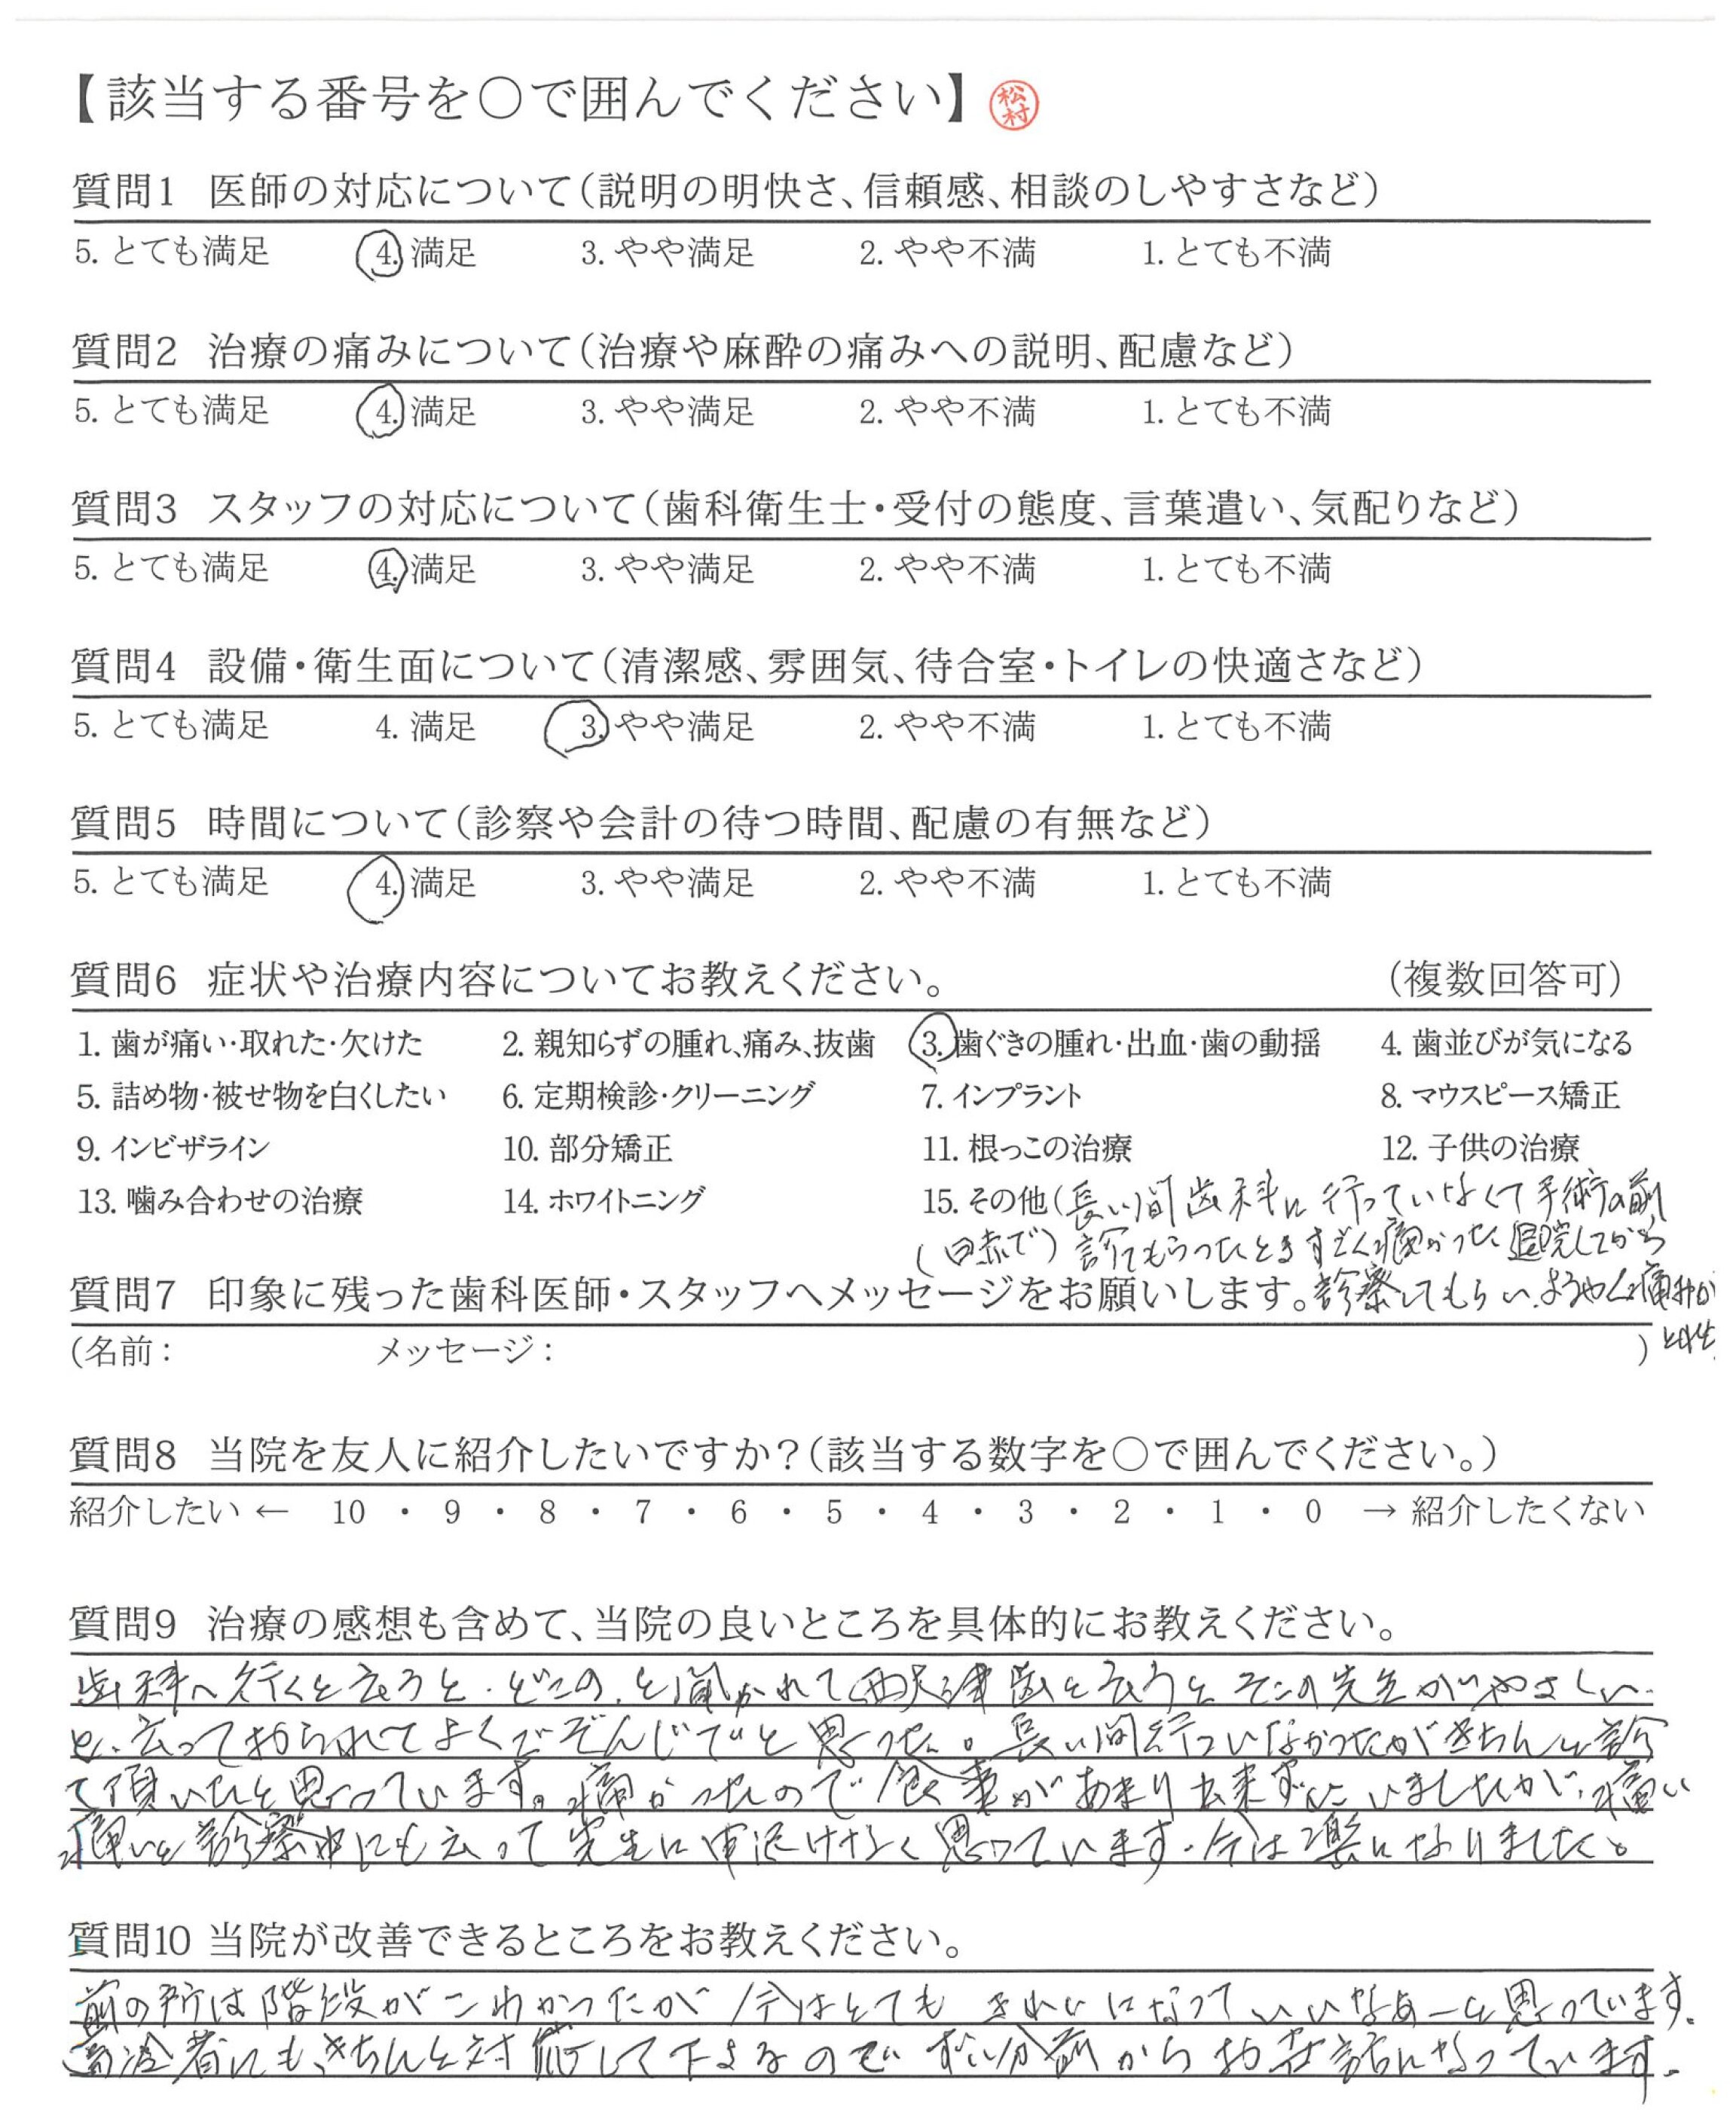 【該当する番号を○で囲んでください】 松村
質問1 医師の対応について（説明の明快さ、信頼感、相談のしやすさなど）
5. とても満足 4. 満足 3. やや満足 2. やや不満 1. とても不満
質問2 治療の痛みについて（治療や麻酔の痛みへの説明、配慮など）
5. とても満足 4. 満足 3. やや満足 2. やや不満 1. とても不満
質問3 スタッフの対応について（歯科衛生士・受付の態度、言葉遣い、気配りなど）
5. とても満足 4. 満足 3. やや満足 2. やや不満 1. とても不満
質問4 設備・衛生面について（清潔感、雰囲気、待合室・トイレの快適さなど）
5. とても満足 4. 満足 3. やや満足 2. やや不満 1. とても不満
質問5 時間について（診察や会計の待つ時間、配慮の有無など）
5. とても満足 4. 満足 3. やや満足 2. やや不満 1. とても不満
質問6 症状や治療内容についてお教えください。 （複数回答可）
1. 歯が痛い・取れた・欠けた 2. 親知らずの腫れ、痛み、抜歯 3. 歯ぐきの腫れ・出血・歯の動揺 4. 歯並びが気になる
5. 詰め物・被せ物を白くしたい 6. 定期検診・クリーニング 7. インプラント 8. マウスピース矯正
9. インビザライン 10. 部分矯正 11. 根っこの治療 12. 子供の治療
13. 噛み合わせの治療 14. ホワイトニング 15. その他（長い間歯科に行っていなくて手術の前
（日赤で）診てもらったときすごく痛かった退院してから
質問7 印象に残った歯科医師・スタッフへメッセージをお願いします。診察してもらい、ようやく痛みが
（名前： メッセージ： ）とれた
質問8 当院を友人に紹介したいですか？（該当する数字を○で囲んでください。）
紹介したい ← 10 ・ 9 ・ 8 ・ 7 ・ 6 ・ 5 ・ 4 ・ 3 ・ 2 ・ 1 ・ 0 → 紹介したくない
質問9 治療の感想も含めて、当院の良いところを具体的にお教えください。
歯科へ行くと言うと、どこの、と聞かれて西大津歯と言うとそこの先生がやさしい
と、云っておられてよくごぞんじでと思った。長い間行ついなかったがきちんと診
て頂いたと思っています。痛かったので食事があまり出来ずにいましたが、痛い
痛いと診察中にも云って先生に申訳けなく思っています。今は楽になりました。
質問10 当院が改善できるところをお教えください。
前の所は階段がこわかったが今はとてもきれいになっていいなあーと思っています。
高令者にもきちんと対応して下さるのでずい分前からお世話になっています。